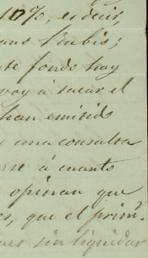 10%, es decir,
fondo hay
voy a sacar el
han emitido
una consulta
á cuanto
opinan que
que el prim.
sin liquidar